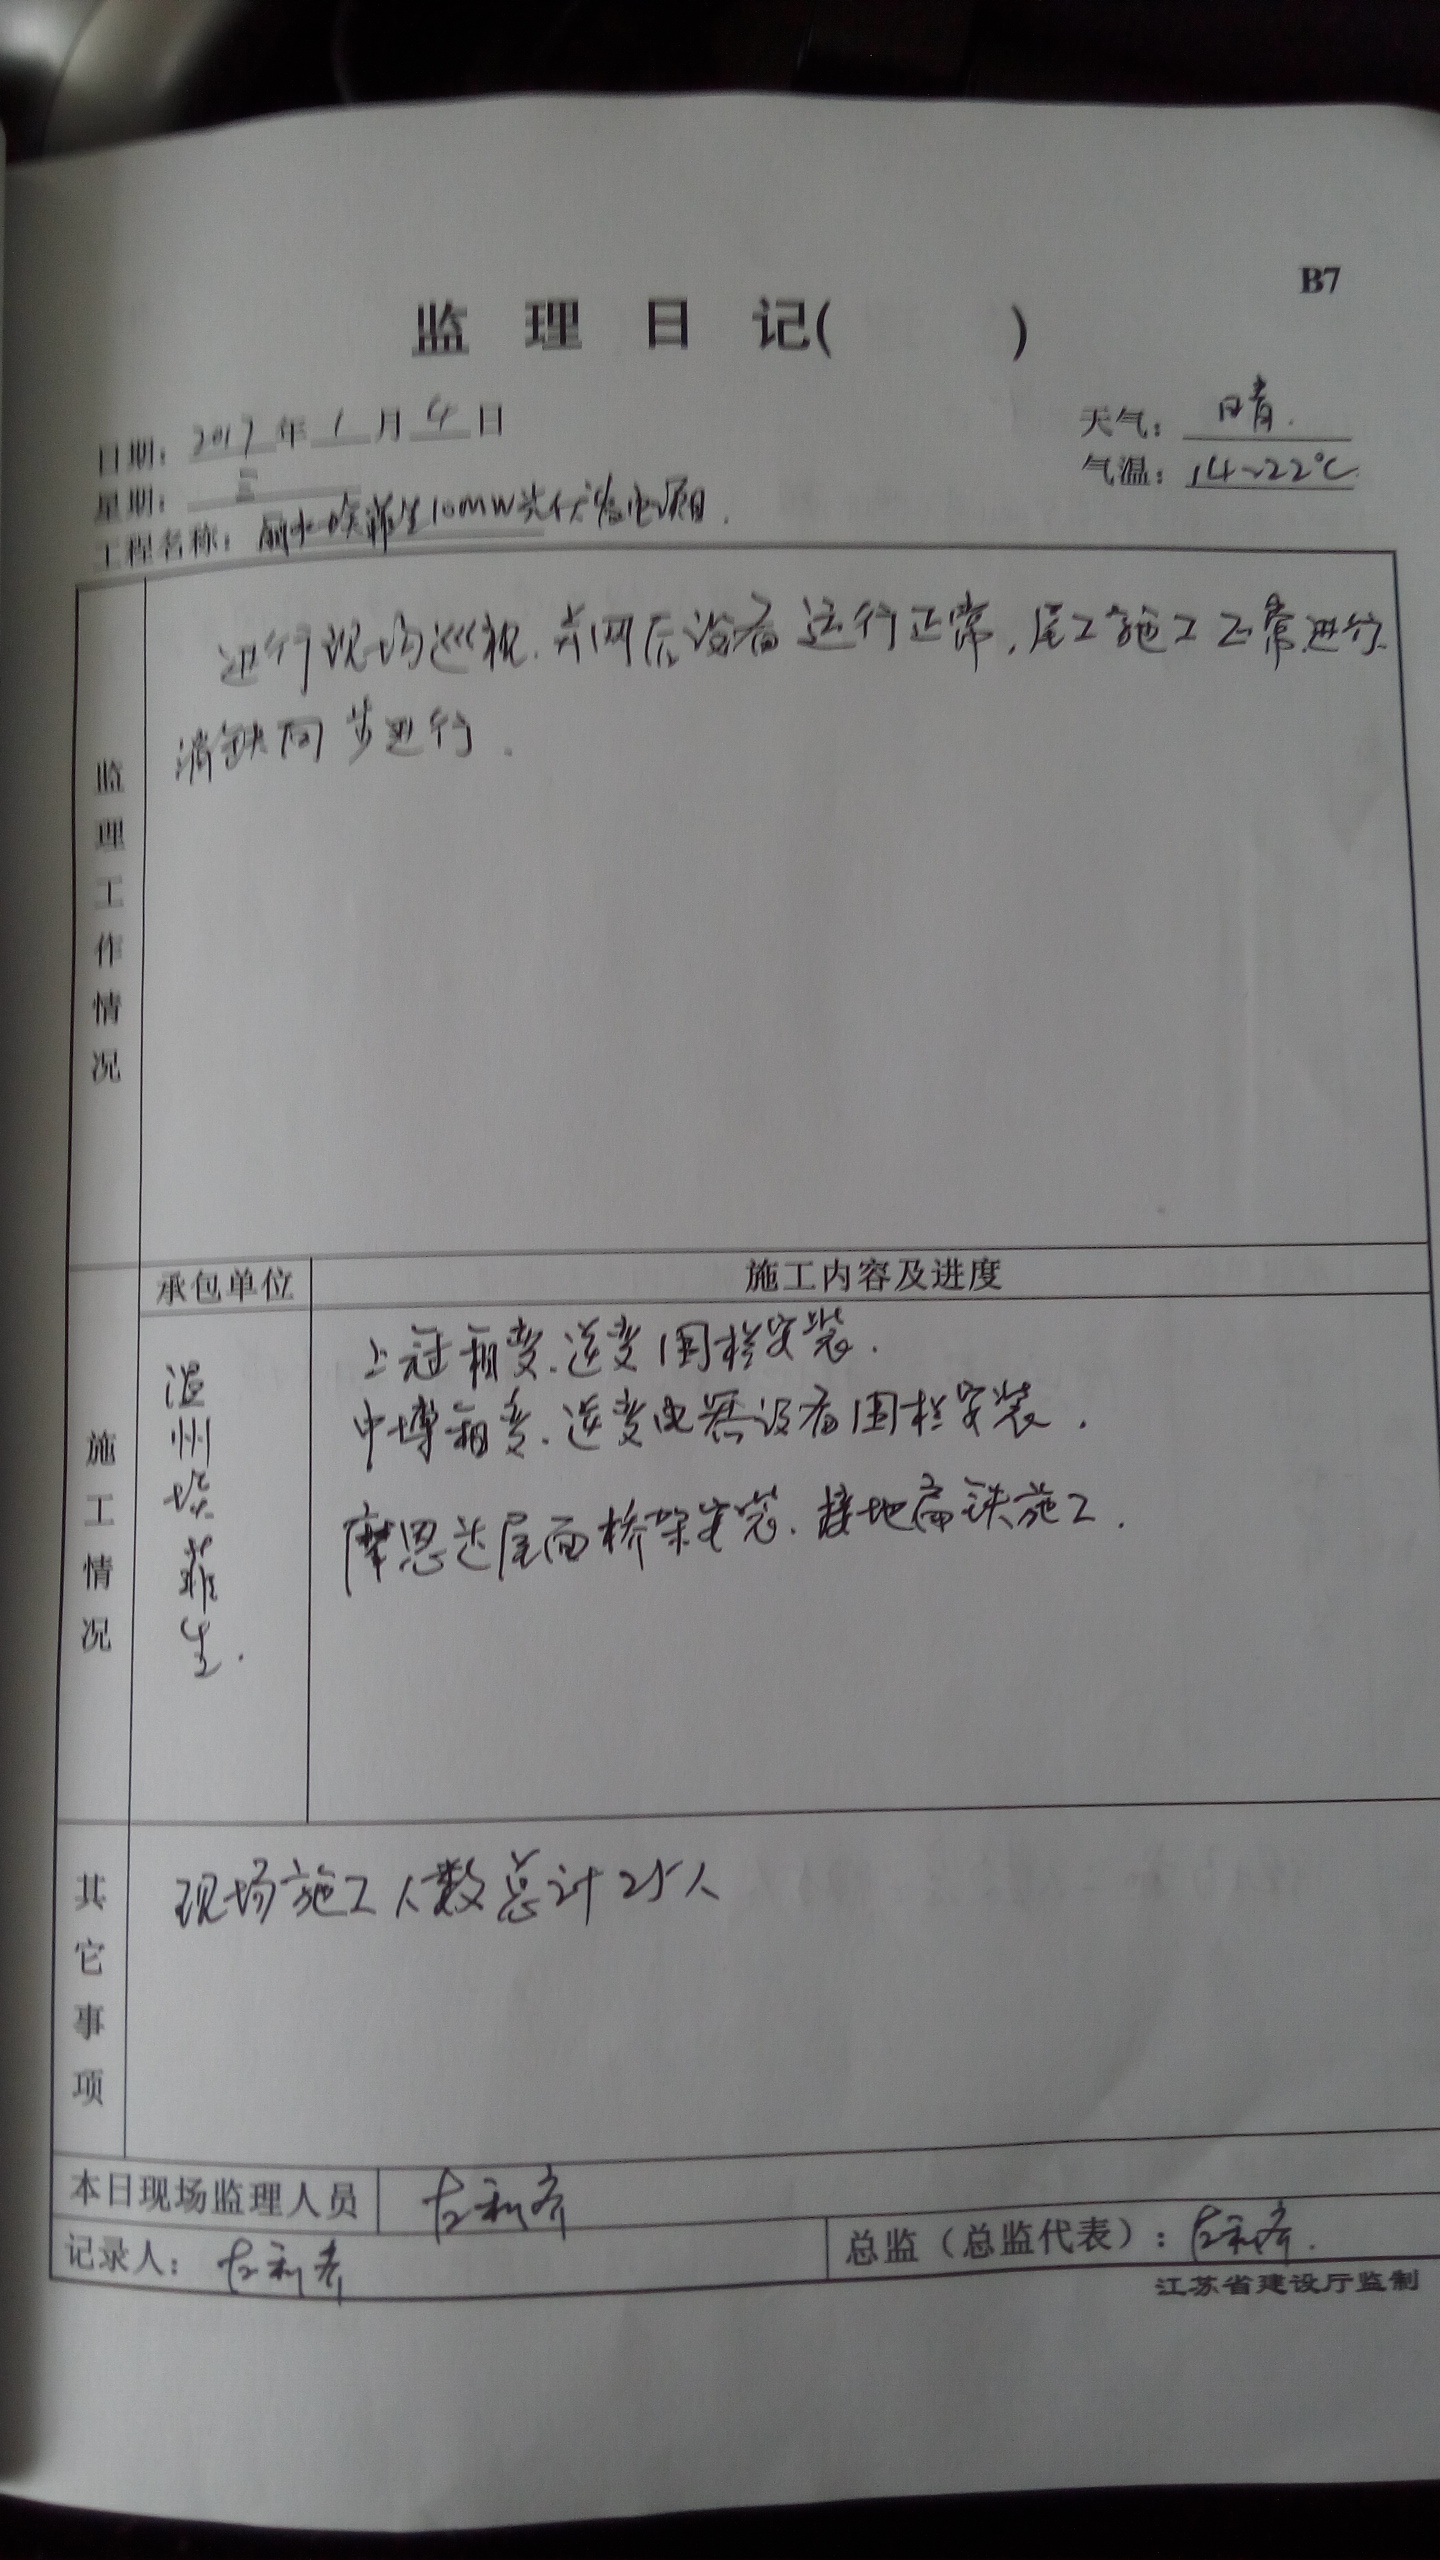 B7
监 理 日 记( )
日期: 2017 年 1 月 4 日
天气: 晴.
星期: 三
气温: 14~22℃
工程名称: 丽水埃菲生10MW光伏发电项目.
监理工作情况
进行现场巡视.并网后设备运行正常,尾工施工正常进行.
消缺同步进行.
承包单位
施工内容及进度
施工情况
温州埃菲生.
上冠箱变.逆变围栏安装.
中博箱变.逆变电器设备围栏安装.
摩恩达屋面桥架安装.接地扁铁施工.
其它事项
现场施工人数总计25人
本日现场监理人员
记录人:
总监(总监代表):
江苏省建设厅监制